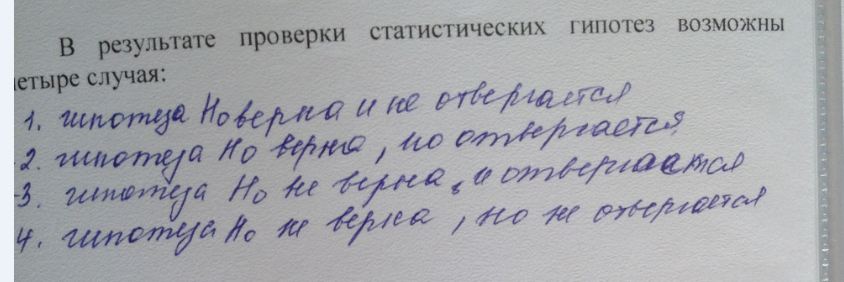 В результате проверки статистических гипотез возможны
четыре случая:
1. гипотеза Но верна и не отвергается
2. гипотеза Но верна, но отвергается
3. гипотеза Но не верна, и отвергается
4. гипотеза Но не верна, но не отвергается